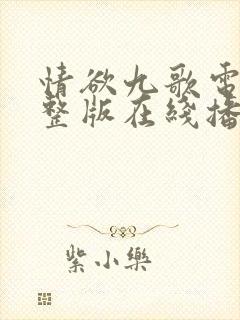 情欲九歌電
整版在綫播
紫小樂